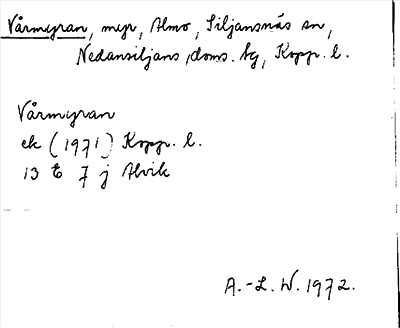 Vårmyran, myr, Almo, Siljansnäs sn,
Nedansiljans doms. tg, Kopp. l.
Vårmyran
ek (1971) Kopp. l.
13 E 7 j Alvik
A.-L. W. 1972.